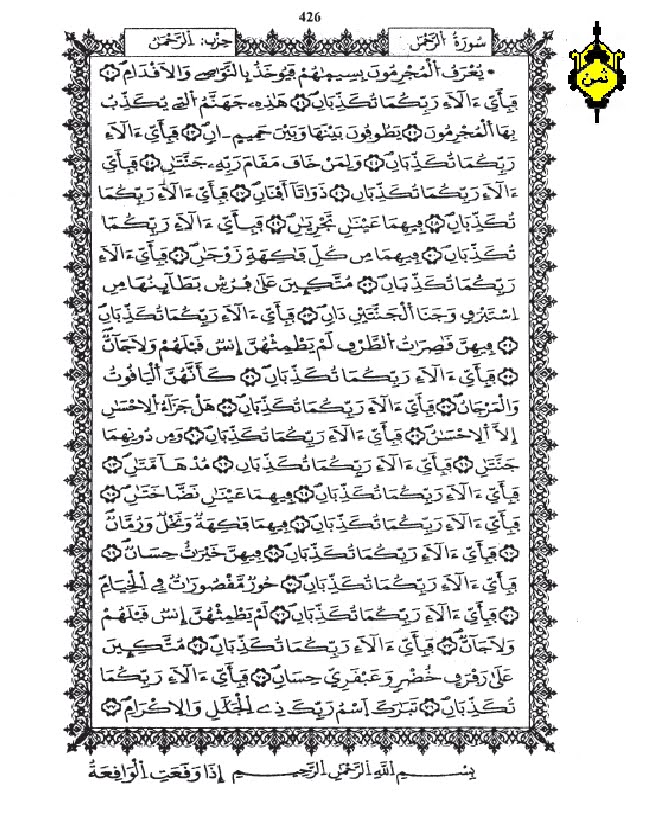 426
سُورَةُ الرَّحْمَٰن
حِزْب: الرَّحْمَٰن
ثمن
يُعْرَفُ الْمُجْرِمُونَ بِسِيمَٰهُمْ فَيُوخَذُ بِالنَّوَٰصِے وَالَاقْدَامِ
فَبِأَيِّ ءَالَآءِ رَبِّكُمَا تُكَذِّبَانِ هَٰذِهِۦ جَهَنَّمُ التِے يُكَذِّبُ
بِهَا اَلْمُجْرِمُونَ يَطُوفُونَ بَيْنَهَا وَبَيْنَ حَمِيمٍ ـ انٖ فَبِأَيِّ ءَالَآءِ
رَبِّكُمَا تُكَذِّبَانِ وَلِمَنْ خَافَ مَقَامَ رَبِّهِۦ جَنَّتَٰنِ فَبِأَيِّ
ءَالَآءِ رَبِّكُمَا تُكَذِّبَانِ ذَوَاتَآ أَفْنَانٖ فَبِأَيِّ ءَالَآءِ رَبِّكُمَا
تُكَذِّبَانِ فِيهِمَا عَيْنَٰنِ تَجْرِيَٰنِ فَبِأَيِّ ءَالَآءِ رَبِّكُمَا
تُكَذِّبَانِ فِيهِمَا مِن كُلِّ فَٰكِهَةٖ زَوْجَٰنِ فَبِأَيِّ ءَالَآءِ
رَبِّكُمَا تُكَذِّبَانِ مُتَّكِـِٕينَ عَلَىٰ فُرُشِۢ بَطَآئِنُهَا مِنِ
اِسْتَبْرَقٖ وَجَنَا اَلْجَنَّتَيْنِ دَانٖ فَبِأَيِّ ءَالَآءِ رَبِّكُمَا تُكَذِّبَانِ
فِيهِنَّ قَٰصِرَٰتُ الطَّرْفِ لَمْ يَطْمِثْهُنَّ إِنسٞ قَبْلَهُمْ وَلَا جَآنّٞ
فَبِأَيِّ ءَالَآءِ رَبِّكُمَا تُكَذِّبَانِ كَأَنَّهُنَّ الْيَاقُوتُ
وَالْمَرْجَانُ فَبِأَيِّ ءَالَآءِ رَبِّكُمَا تُكَذِّبَانِ هَلْ جَزَآءُ الِاحْسَٰنِ
إِلَّا اَلِاحْسَٰنُ فَبِأَيِّ ءَالَآءِ رَبِّكُمَا تُكَذِّبَانِ وَمِن دُونِهِمَا
جَنَّتَٰنِ فَبِأَيِّ ءَالَآءِ رَبِّكُمَا تُكَذِّبَانِ مُدْهَآمَّتَٰنِ
فَبِأَيِّ ءَالَآءِ رَبِّكُمَا تُكَذِّبَانِ فِيهِمَا عَيْنَٰنِ نَضَّاخَتَٰنِ
فَبِأَيِّ ءَالَآءِ رَبِّكُمَا تُكَذِّبَانِ فِيهِمَا فَٰكِهَةٞ وَنَخْلٞ وَرُمَّانٞ
فَبِأَيِّ ءَالَآءِ رَبِّكُمَا تُكَذِّبَانِ فِيهِنَّ خَيْرَٰتٌ حِسَانٞ
فَبِأَيِّ ءَالَآءِ رَبِّكُمَا تُكَذِّبَانِ حُورٞ مَّقْصُورَٰتٞ فِے الْخِيَامِ
فَبِأَيِّ ءَالَآءِ رَبِّكُمَا تُكَذِّبَانِ لَمْ يَطْمِثْهُنَّ إِنسٞ قَبْلَهُمْ
وَلَا جَآنّٞ فَبِأَيِّ ءَالَآءِ رَبِّكُمَا تُكَذِّبَانِ مُتَّكِـِٕينَ
عَلَىٰ رَفْرَفٍ خُضْرٖ وَعَبْقَرِيٍّ حِسَانٖ فَبِأَيِّ ءَالَآءِ رَبِّكُمَا
تُكَذِّبَانِ تَبَٰرَكَ اَسْمُ رَبِّكَ ذِے الْجَلَٰلِ وَالِاكْرَامِ
بِسْمِ اللَّهِ الرَّحْمَٰنِ الرَّحِيمِ إِذَا وَقَعَتِ الْوَاقِعَةُ